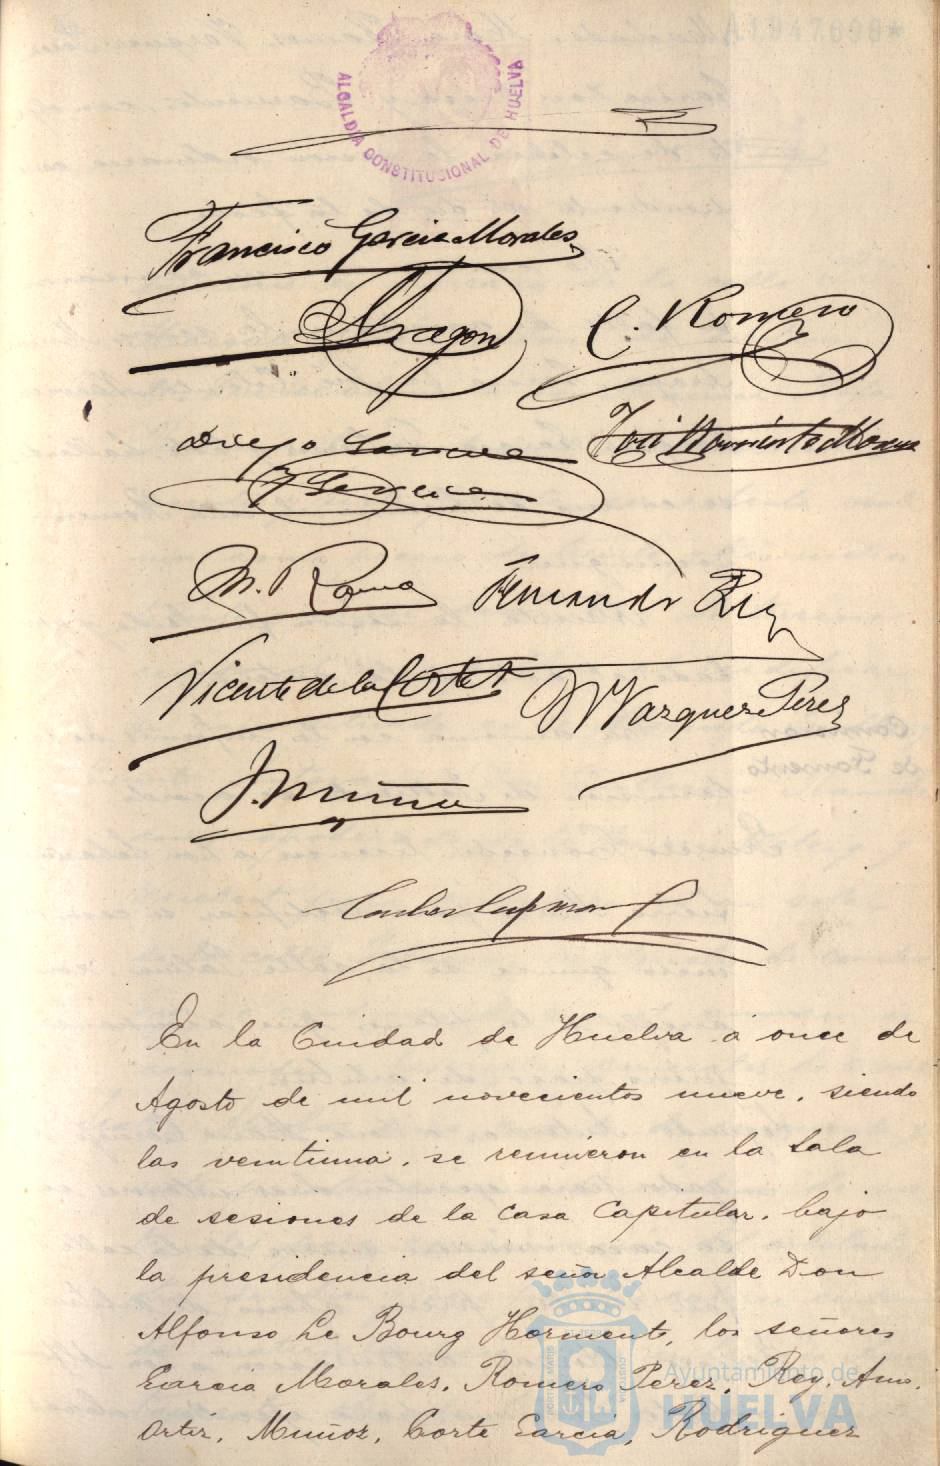 ALCALDIA CONSTITUCIONAL DE HUELVA
Francisco Garcia Morales
Aragon
C. Romero
Diego Garcia
José Morales
J Garcia
M. Roma
Fernando Rey
Vicente de la Corte
Vazquez Perez
J. Muñoz
En la Ciudad de Huelva á once de
Agosto de mil novecientos nueve, siendo
las veintiuna, se reunieron en la Sala
de sesiones de la Casa Capitular, bajo
la presidencia del señor Alcalde Don
Alfonso Le Bourg Hormente, los señores
Garcia Morales, Romero Perez, Rey, Amo,
Ortiz, Muñoz, Corte Garcia, Rodriguez
Ayuntamiento de
HUELVA